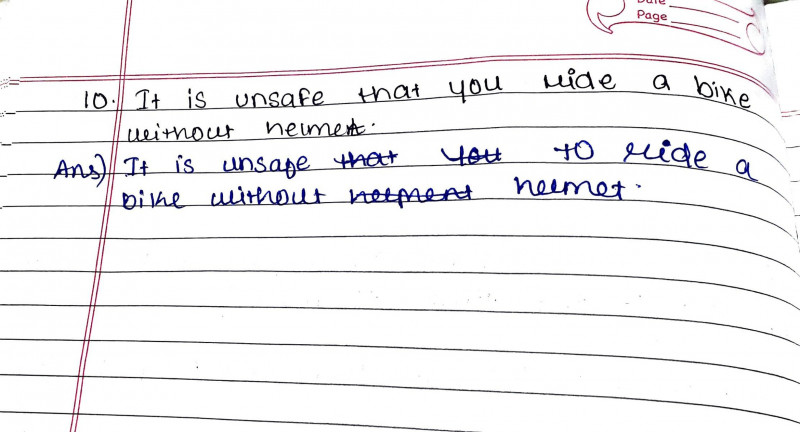 Date
Page
10. It is unsafe that you ride a bike
without helmet.
Ans) It is unsafe that you to ride a
bike without helment helmet.